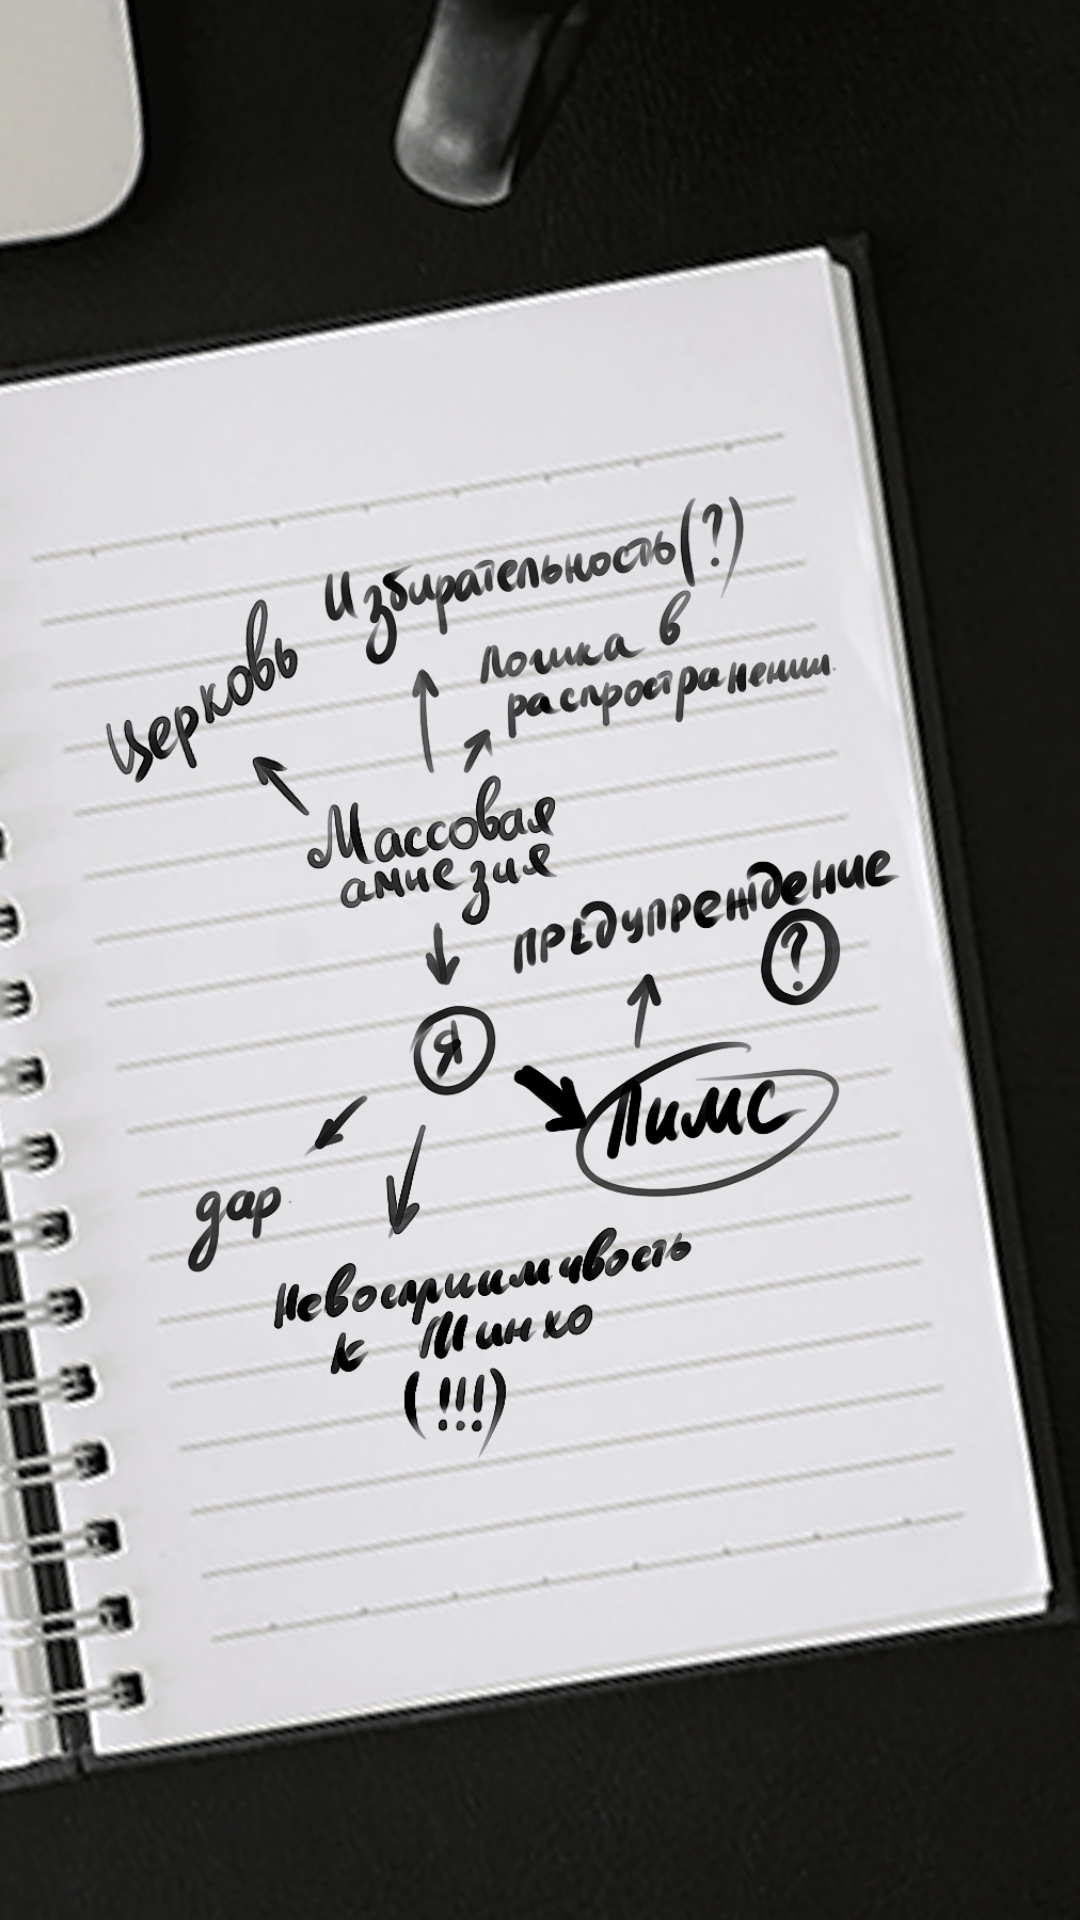 Избирательность(?)
Церковь
Логика в
распространении.
Массовая
амнезия
ПРЕДУПРЕЖДЕНИЕ
?
Я
Пимс
дар
Невосприимчвость
к Минхо
(!!!)